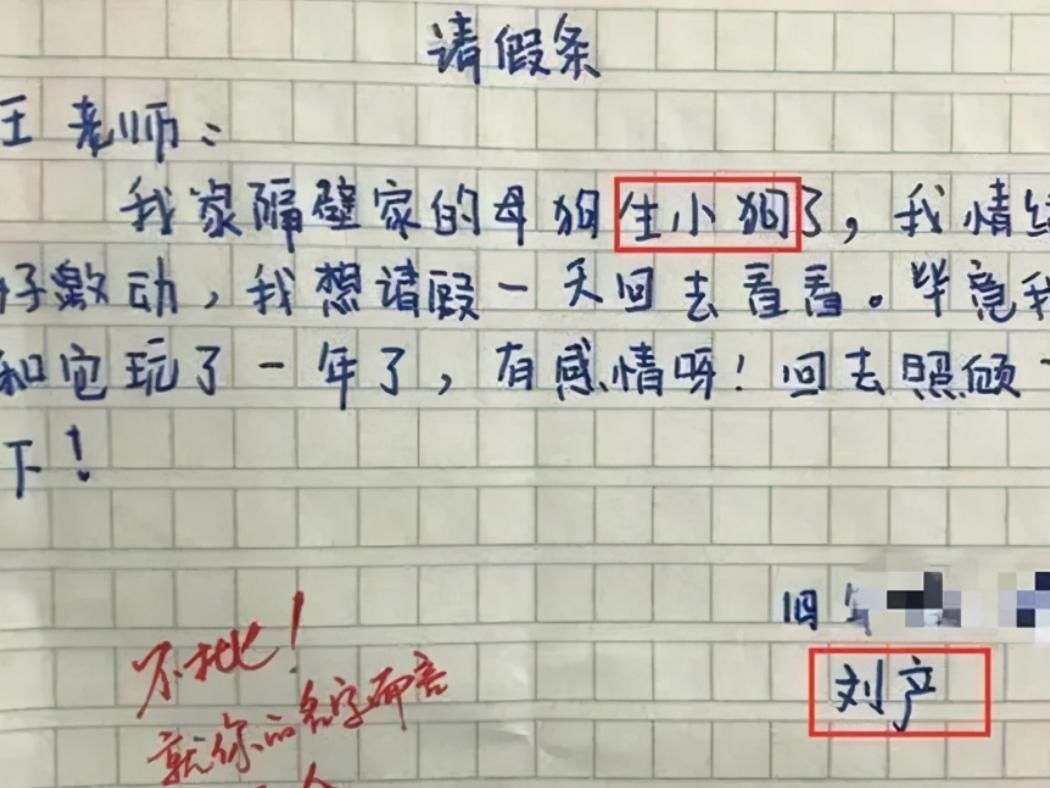 请假条
王老师：
我家隔壁家的母狗生小狗了，我情绪
好激动，我想请假一天回去看看。毕竟我
和它玩了一年了，有感情呀！回去照顾一
下！
刘产
不批！
就你的名字而言